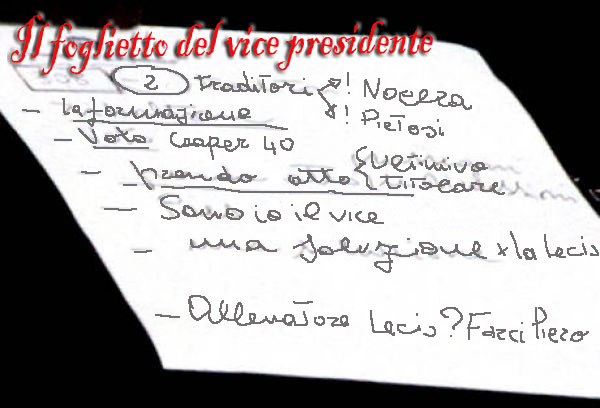 Il foglietto del vice presidente
2 traditori ! Nocera
! Pietosi
- la formazione
- Voto Cooper 40
- prendo atto { Vetinivo
{ titolare
- Sono io il vice
- una soluzione x la Lecis
- Allenatore Lecis? Farci Piero